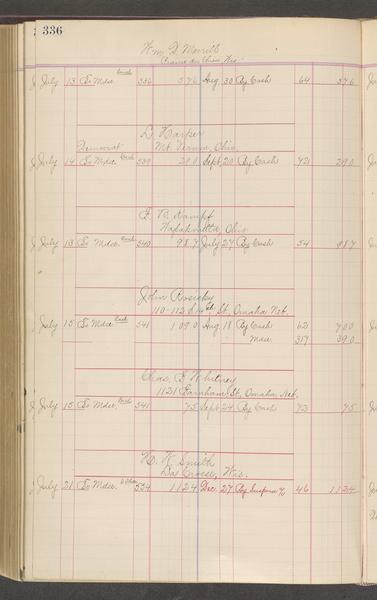 336
Wm. D. Merrill
Prairie du Chien, Wis.
July 13 To Mdse. 536 5 76 Aug. 30 By Cash 64 5 76
L. Harper
Democrat Mt. Vernon, Ohio
July 14 To Mdse. Cash 539 2 90 Sept. 20 By Cash 72 2 90
F. B. Kampf
Wapakoneta, Ohio
July 13 To Mdse. 540 9 87 July 27 By Cash 54 9 87
John Rosicky
110-112 S 14th St. Omaha Neb.
July 15 To Mdse. 541 10 90 Aug. 18 By Cash 62 7 00
Mdse. 317 3 90
Chas. E. Whitney
1121 Farnham St, Omaha, Neb.
July 15 To Mdse. 541 75 Sept 24 By Cash 73 75
H. H. Smith
La Crosse, Wis.
July 21 To Mdse. 554 11 24 Dec. 27 By Suspense a/c 46 11 24